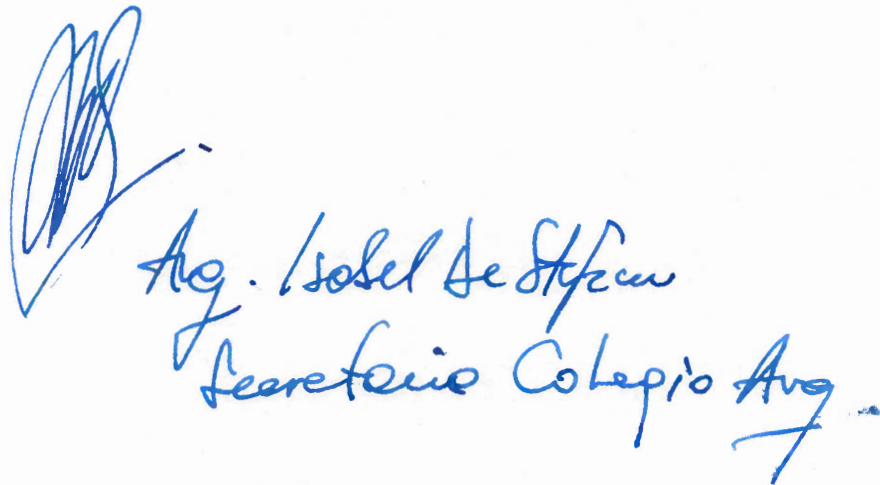 Arq. Isabel De Stefani
Secretaria Colegio Arq.